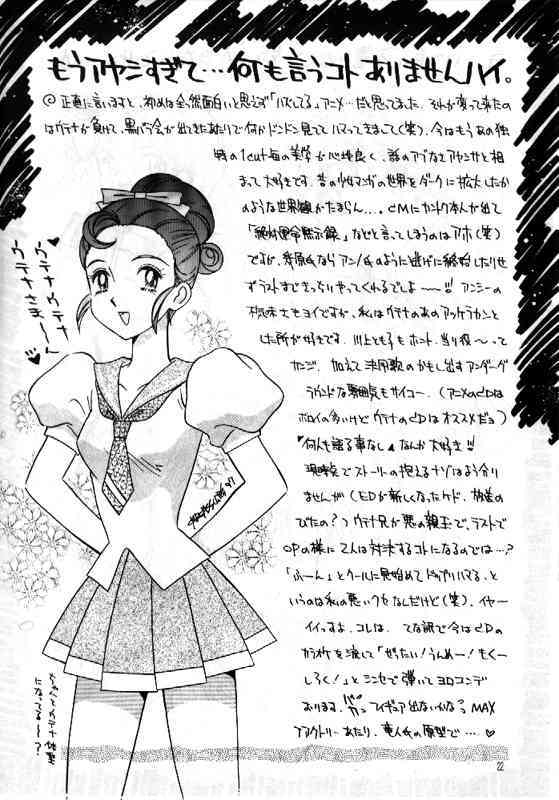 もうアヤシすぎて…何も言うコトありませんハイ。
◎正直に言いますと、初めは全然面白いと思えず「ハズしてる」アニメ…だと思ってました。それが変って来たの
はウテナが負けて、黒バラ会が出てきたあたりで何かドンドン見ててハマってきまして(笑)。今はもうあの独
特の1cut毎の美学が心地良く、話のアブなさアヤシサと相
まって大好きです。昔の少女マンガの世界をダークに拡大したか
のような世界線がたまらん…。CMにカントク本人が出て
「絶対運命黙示録」などと言ってしまうのはアホ(笑)
ですが、幾原氏ならアンノ氏のように逃げに終始したりせ
ずラストまできっちりやってくれるでしょ〜!!! アンシーの
さもヨイですが、私はウテナのあのアッケラカンと
した所が好きです。川上とも子もホント、当り役〜って
カンジ。加えて決闘歌のかもし出すアンダーグ
ラウンドな雰囲気もサイコー。(アニメのCDは
ボロイの多いけどウテナのCDはオススメだョ)
"何人も語る事なし"なんか大好き!!
現時点でストーリーの抱えるナゾはよう分り
ませんが(EDが新しくなったケド、放送の
びたの?)ウテナ兄が悪の親玉で、ラストで
OPの様に2人は対決するコトになるのでは…?
「ふーん」とクールに見始めてドップリハマる、と
いうのは私の悪いクセなんだけど(笑)、イヤー
イイっすよ、コレは。てな訳で今はCDの
カラオケを流して「ぜったい!うんめー!もくー
しろく!」とシンセで弾いてヨロコンデ
おります。フィギュア出ないかな?MAX
ファクトリーあたり、竜人氏の原型で……♡
ウテナウテナ
ウテナさま〜ん♡
ちゃんとウテナ体型
になってる〜?
22